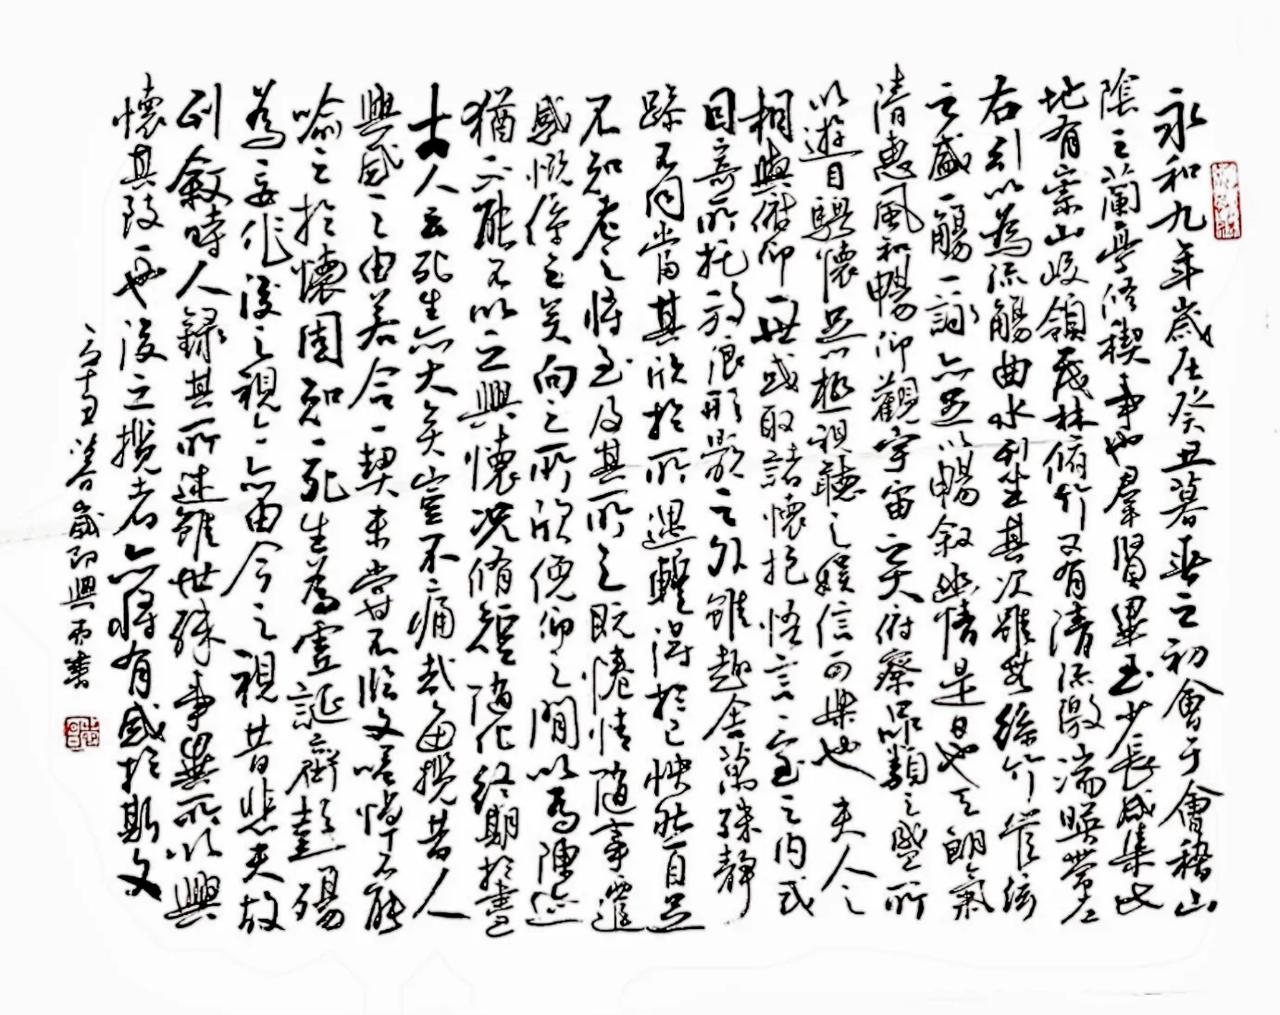 永和九年歲在癸丑暮春之初會于會稽山
陰之蘭亭修禊事也羣賢畢至少長咸集此
地有崇山峻領茂林脩竹又有清流激湍暎帶左
右引以為流觴曲水列坐其次雖無絲竹管弦
之盛一觴一詠亦足以暢敘幽情是日也天朗氣
清惠風和暢仰觀宇宙之大俯察品類之盛所
以遊目騁懷足以極視聽之娛信可樂也 夫人之
相與俯仰一世或取諸懷抱悟言一室之內或
因寄所托放浪形骸之外雖趣舍萬殊靜
躁不同當其欣於所遇蹔得於己怏然自足
不知老之將至及其所之既惓情隨事遷
感慨係之矣向之所欣俛仰之閒以為陳迹
猶不能不以之興懷況脩短隨化終期於盡
古人云死生亦大矣豈不痛哉每攬昔人
興感之由若合一契未嘗不臨文嗟悼不能
喻之於懷固知一死生為虛誕齊彭殤
為妄作後之視今亦由今之視昔悲夫故
列敘時人錄其所述雖世殊事異所以興
懷其致一也後之攬者亦將有感於斯文
歲即興而書